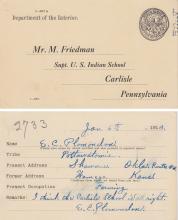 Department of the Interior.
Mr. M. Friedman
Supt. U. S. Indian School
Carlisle
Pennsylvania
2733
Jan 6th 191
Name E. C. Plomondon
Tribe Pottawatomie
Present Address Shawnee Okla
Former Address Kansas
Present Occupation Farming
Remarks: I think the Carlisle School is all right.
E. C. Plomondon